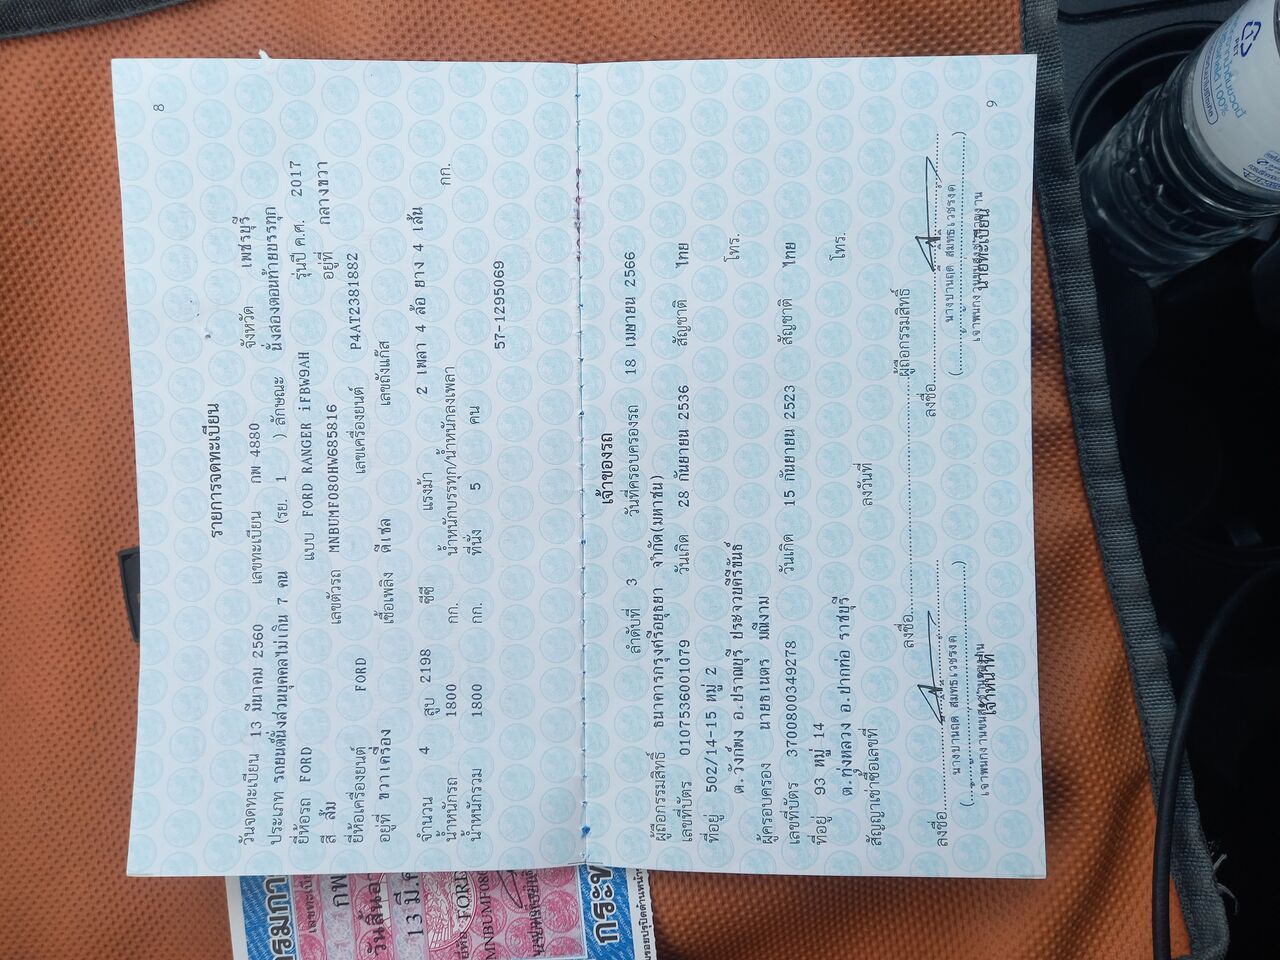 8
รายการจดทะเบียน
วันจดทะเบียน 13 มีนาคม 2560 เลขทะเบียน กพ 4880 จังหวัด เพชรบุรี
ประเภท รถยนต์นั่งส่วนบุคคลไม่เกิน 7 คน (รย. 1 ) ลักษณะ นั่งสองตอนท้ายบรรทุก
ยี่ห้อรถ FORD แบบ FORD RANGER iFBW9AH รุ่นปี ค.ศ. 2017
สี ส้ม เลขตัวรถ MNBUMF080HW685816 อยู่ที่ กลางขวา
ยี่ห้อเครื่องยนต์ FORD เลขเครื่องยนต์ P4AT2381882
อยู่ที่ ขวาเครื่อง เชื้อเพลิง ดีเซล เลขถังแก๊ส
จำนวน 4 สูบ 2198 ซีซี แรงม้า 2 เพลา 4 ล้อ ยาง 4 เส้น
น้ำหนักรถ 1800 กก. น้ำหนักบรรทุก/น้ำหนักลงเพลา กก.
น้ำหนักรวม 1800 กก. ที่นั่ง 5 คน
57-1295069
เจ้าของรถ
ลำดับที่ 3 วันที่ครอบครองรถ 18 เมษายน 2566
ผู้ถือกรรมสิทธิ์ ธนาคารกรุงศรีอยุธยา จำกัด(มหาชน)
เลขที่บัตร 0107536001079 วันเกิด 28 กันยายน 2536 สัญชาติ ไทย
ที่อยู่ 502/14-15 หมู่ 2 โทร.
ต.วังก์พง อ.ปราณบุรี ประจวบคีรีขันธ์
ผู้ครอบครอง นายธเนตร มณีงาม
เลขที่บัตร 3700800349278 วันเกิด 15 กันยายน 2523 สัญชาติ ไทย
ที่อยู่ 93 หมู่ 14 โทร.
ต.ทุ่งหลวง อ.ปากท่อ ราชบุรี
สัญญาเช่าซื้อเลขที่ ลงวันที่
ลงชื่อ ผู้ถือกรรมสิทธิ์
ลงชื่อ ลงชื่อ
เจ้าหน้าที่ นายทะเบียน
9
เลขทะเบียน
กพ
วันสิ้นอายุ
13 มี.ค
ยี่ห้อ FORD
MNBUMF080
PET
100%